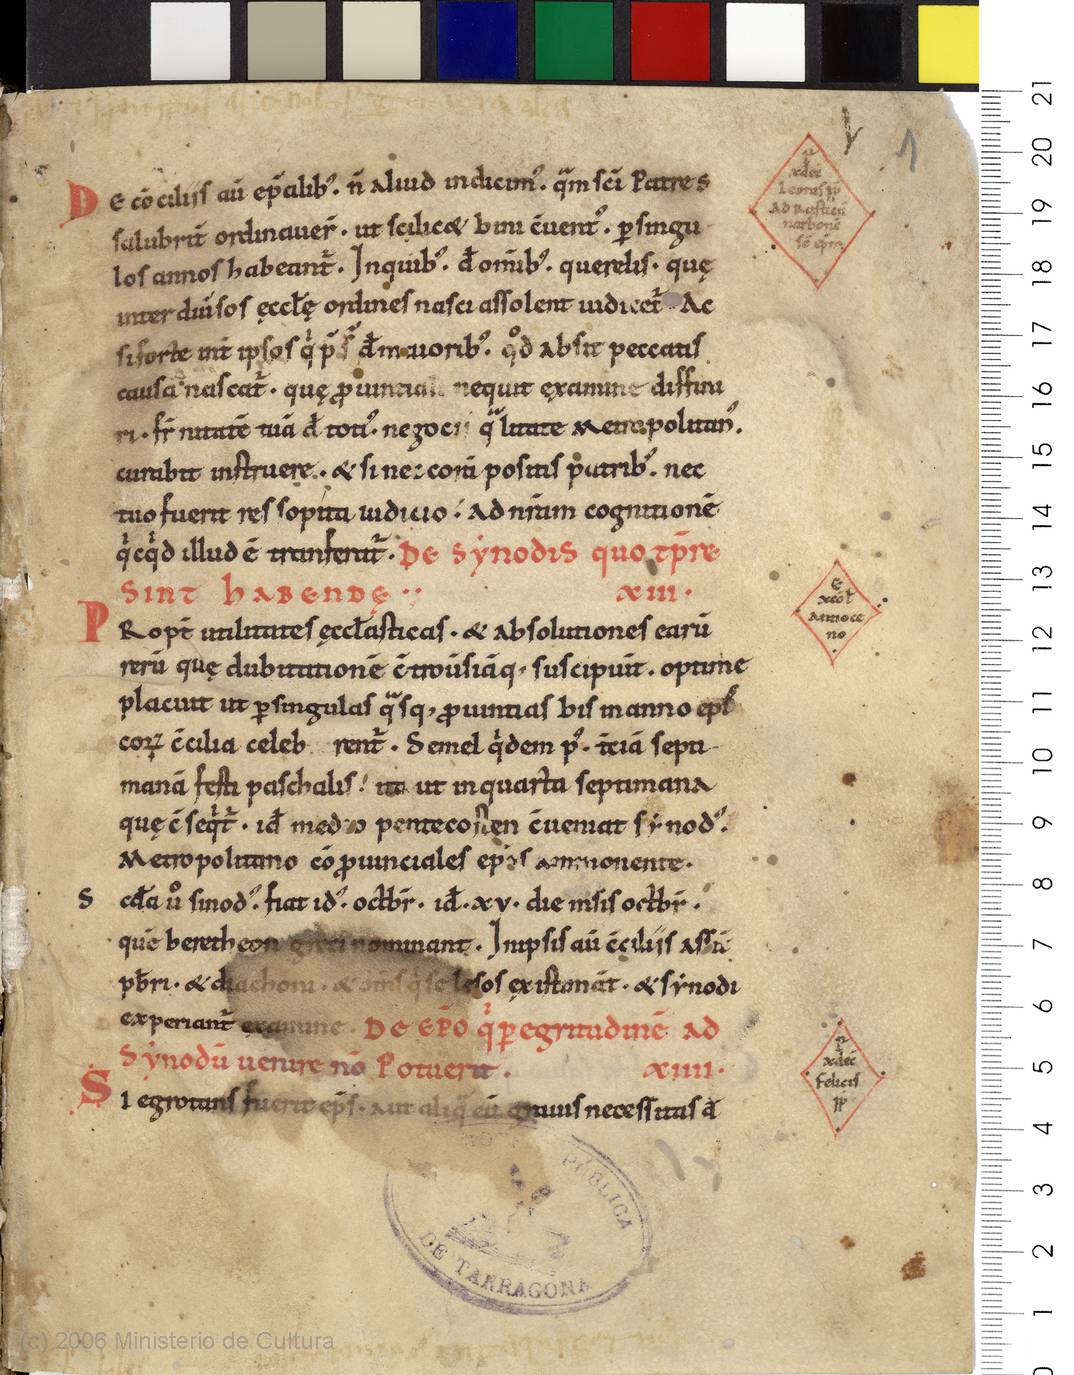 De cōciliis aū ep̄alib᷒. n̄ aliud indicim᷒. qͣm sc̄i Patres
salubrit̄ ordinauer̄. ut scilic& bini c̄uent᷒. ꝑ singu
los annos habeant̄. Inquib᷒. d̄ om̄ib᷒. querelis. quę
inter diuͥsos ęccl̄ę ordines nasci assolent iudicet̄ Ac
si forte int̄ ipsos d̄ maiorib᷒. qͦd absit peccatis
causa nascat̄. quę ꝓuinciali nequit ęxamine diffini
ri. fr̄nitatē tuā d̄ toti᷒. negocii qͣlitate Metropolitan᷒.
curabit instruere. & si nec corā positis patrib᷒. nec
tuo fuerit res sopita iudicio. Ad nr̄am cognitionē
qͥcqͥd illud ē transferat̄. De Synodis quo tp̄re
Sint habendę xiii.
PRopt̄ utilitates ęccl̄asticas. & absolutiones earū
rerū quę dubitationē c̄trouͥsiāq, suscipiūt. optime
placuit ut ꝑ singulas qͣsq, ꝓuintias bis in anno ep̄s
coꝝ c̄cilia celeb rent̄. Semel qͥdem p᷒. t̄ciā septi
manā festi paschalis. ita ut in quarta septimana
quę c̄seqͥt̄. id̄ medio pentecosten c̄ueniat synod᷒.
Metropolitano cōꝓuinciales ep̄os ammonente.
Scd̄a uͦ sinod᷒. fiat id᷒. octb̄r. id̄. xv. die m̄sis octb̄r.
quē beretheon greci nominant. In ipsis aū c̄ciliis assīt
pb̄ri. & diachoni. & om̄s qͥ se lęsos ęxistimāt. & sýnodi
experiant̄ examine. De EP̄O qͥ ꝑ egritudinē ad
Sýnodū uenire nō Potuerit. xiiii.
SI egrotans fuerit ep̄s. aut aliqͣ eū grauis necessitas d̄
1
Ex dec̄
Leonis pp̄
Ad Rusticū
narbonē
sē ep̄m
E
xcōl̄
Antioce
no
xdec̄
felicis
pp̄
PÚBLICA
DE TARRAGONA
(c) 2006 Ministerio de Cultura
21
20
19
18
17
16
15
14
13
12
11
10
9
8
7
6
5
4
3
2
1
0